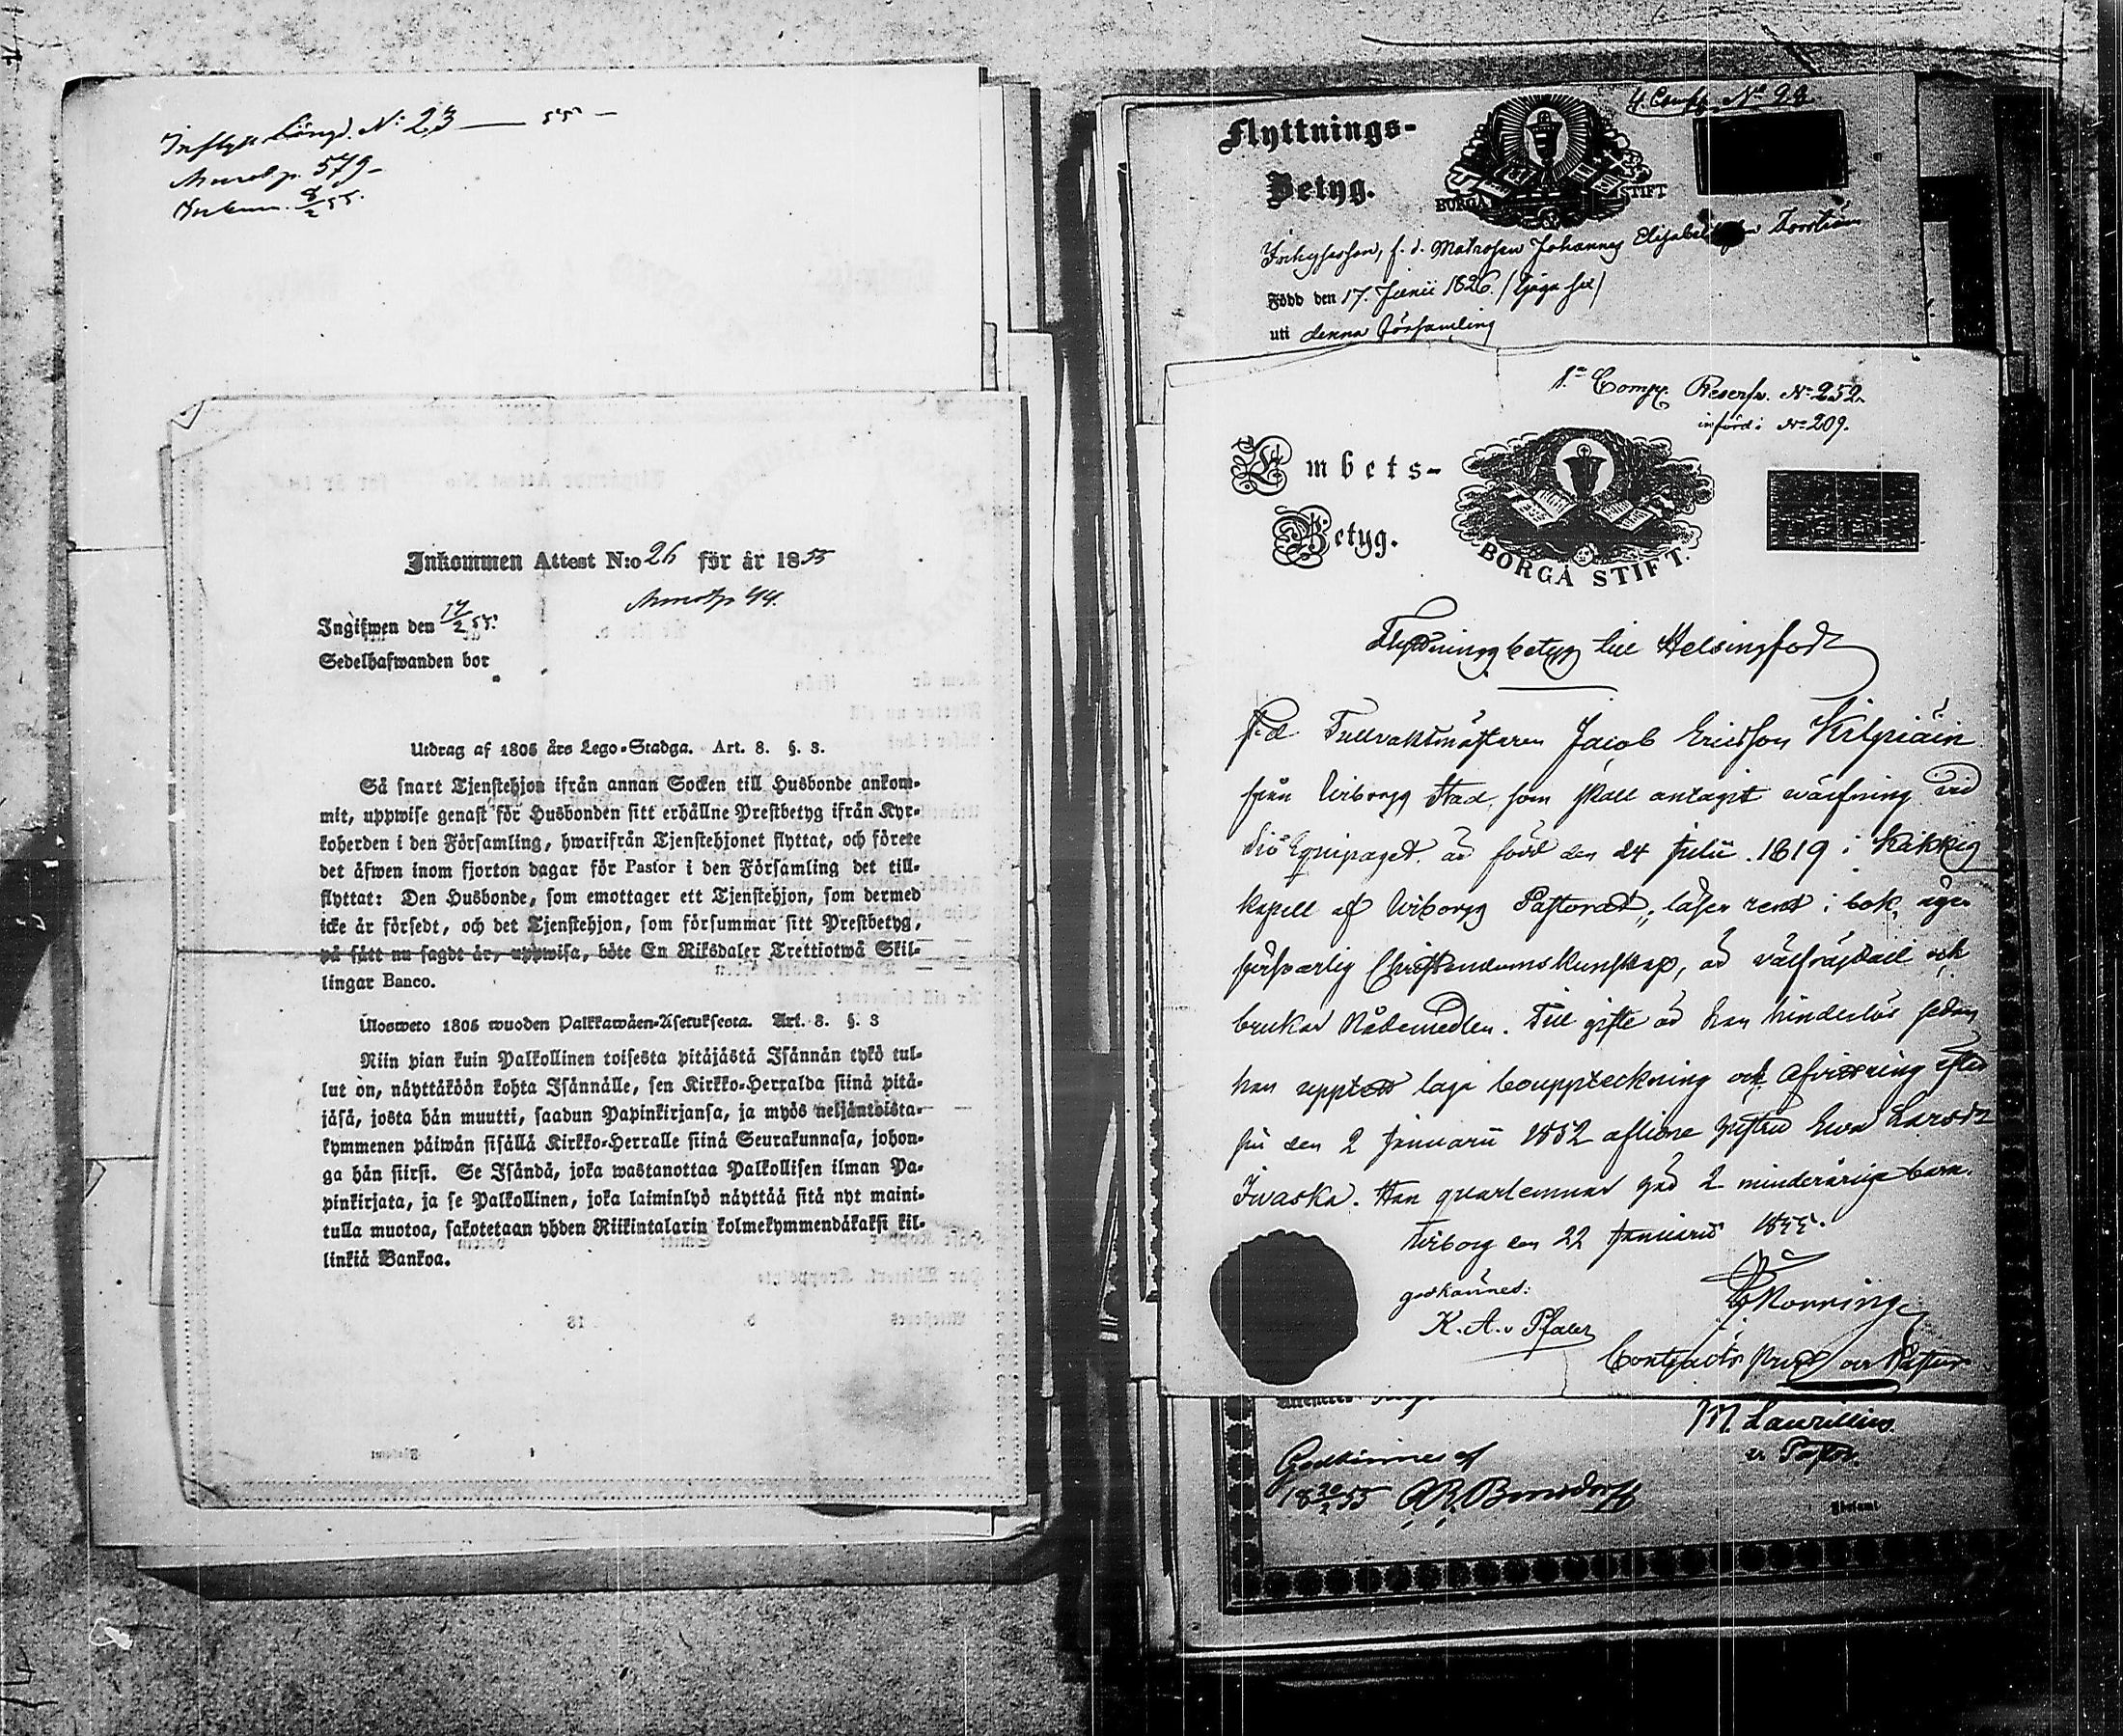 Inflytt. Längd. N: 23 — 55 —
579 —
Inkom. 8/2 55.
Inkommen Attest N:o 26 för år 1855
44.
Ingifwen den 14/2 55.
Sedelhafwanden bor
Utdrag af 1805 års Lego-Stadga. Art. 8. §. 3.
Så snart Tjenstehjon ifrån annan Socken till Husbonde ankom-
mit, uppwise genast för Husbonden sitt erhållne Prestbetyg ifrån Kyr-
koherden i den Församling, hwarifrån Tjenstehjonet flyttat, och förete
det äfwen inom fjorton dagar för Pastor i den Församling det till-
flyttat: Den Husbonde, som emottager ett Tjenstehjon, som dermed
icke är försedt, och det Tjenstehjon, som försummar sitt Prestbetyg,
på sätt nu sagdt är, uppwisa, böte En Riksdaler Trettiotwå Skil-
lingar Banco.
Ulosweto 1805 wuoden Palkkawäen-Asetuksesta. Art. 8. §. 3
Niin pian kuin Palkollinen toisesta pitäjästä Isännän tykö tul-
lut on, näyttäköön kohta Isännälle, sen Kirkko-Herralda siinä pitä-
jäsä, josta hän muutti, saadun Papinkirjansa, ja myös neljäntoista-
kymmenen päiwän sisällä Kirkko-Herralle siinä Seurakunnasa, johon-
ga hän siirsi. Se Isändä, joka wastanottaa Palkollisen ilman Pa-
pinkirjata, ja se Palkollinen, joka laiminlyö näyttää sitä nyt maini-
tulla muotoa, sakotetaan yhden Riikintalarin kolmekymmendäkaksi kil-
linkiä Bankoa.
4. Comp. No 94
Flyttnings-
Betyg.
BORGÅ STIFT
Inhysesson, f. d. Matrosen Johannes
Född den 17. Junii 1826. / tjugu sex /
uti denna församling
1:a Comp. Reserv. No 252.
införd i No 209.
Embets-
Betyg.
BORGÅ STIFT.
Flyttningsbetyg till Helsingfors
F.d. Tullvaktmästaren Jacob Ericsson Kilpiäin
från Wiborgs Stad, som skall antagit värfning vid
Sjö Equipaget, är född den 24 Julii 1819 i Kakkis
kapell af Wiborgs Pastorat; läser rent i bok, äger
försvarlig Christendomskunskap, är välfräjdad och
brukar Nådemedlen. Till gifte är han hinderlös sedan
han upptett laga bouppteckning och afvittring efter
sin den 2 Januarii 1852 aflidne hustru Ewa Larsdr
Iwaska. Han qvarlemnar här 2 minderåriga barn.
Wiborg den 22 Januarii 1855.
godkännes:
K. A. v Pfaler
Contracts Prost och Pastor
M. Laurellius.
v. Pastor.
Godkännes af
18 20/2 55